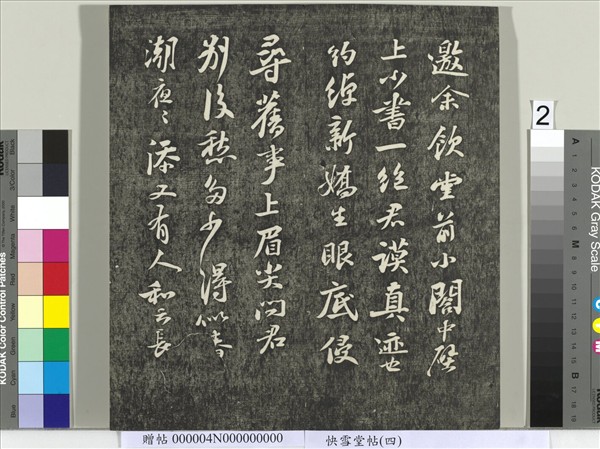 邀余飲堂前小閣中壁
上小書一絕君謨真迹也
約綽新嬌生眼底侵
尋舊事上眉尖問君
別後愁多少得似春
潮夜〻添又有人和云長
2
KODAK Color Control Patches
Blue
Cyan
Green
Yellow
Red
Magenta
White
3/Color
Black
KODAK Gray Scale
A 1 2 3 4 5 6 M 8 9 10 11 12 13 14 15 B 17 18 19
C Y M
贈帖 000004N000000000
快雪堂帖(四)